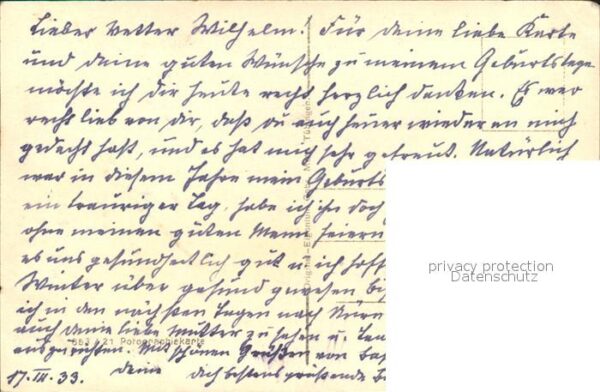 Lieber Vetter Wilhelm! Für deine liebe Karte
und deine guten Wünsche zu meinem Geburtstage
möchte ich dir heute recht herzlich danken. Es war
recht lieb von dir, daß du auch heuer wieder an mich
gedacht hast, und es hat mich sehr gefreut. Natürlich
war in diesem Jahre mein Geburts
ein trauriger Tag, habe ich ihn doch
ohne meinen guten Mann feiern
es uns gesundheitlich gut u. ich hoff
Winter über gesund gewesen bi
ich in den nächsten Tagen nach Nürn
auch deine liebe Mutter zu sehen u.
auszurichten. Mit schönen Grüßen von
17. III. 33. deine dich bestens grüßende
663 / 21 Fotographiekarte
privacy protection
Datenschutz